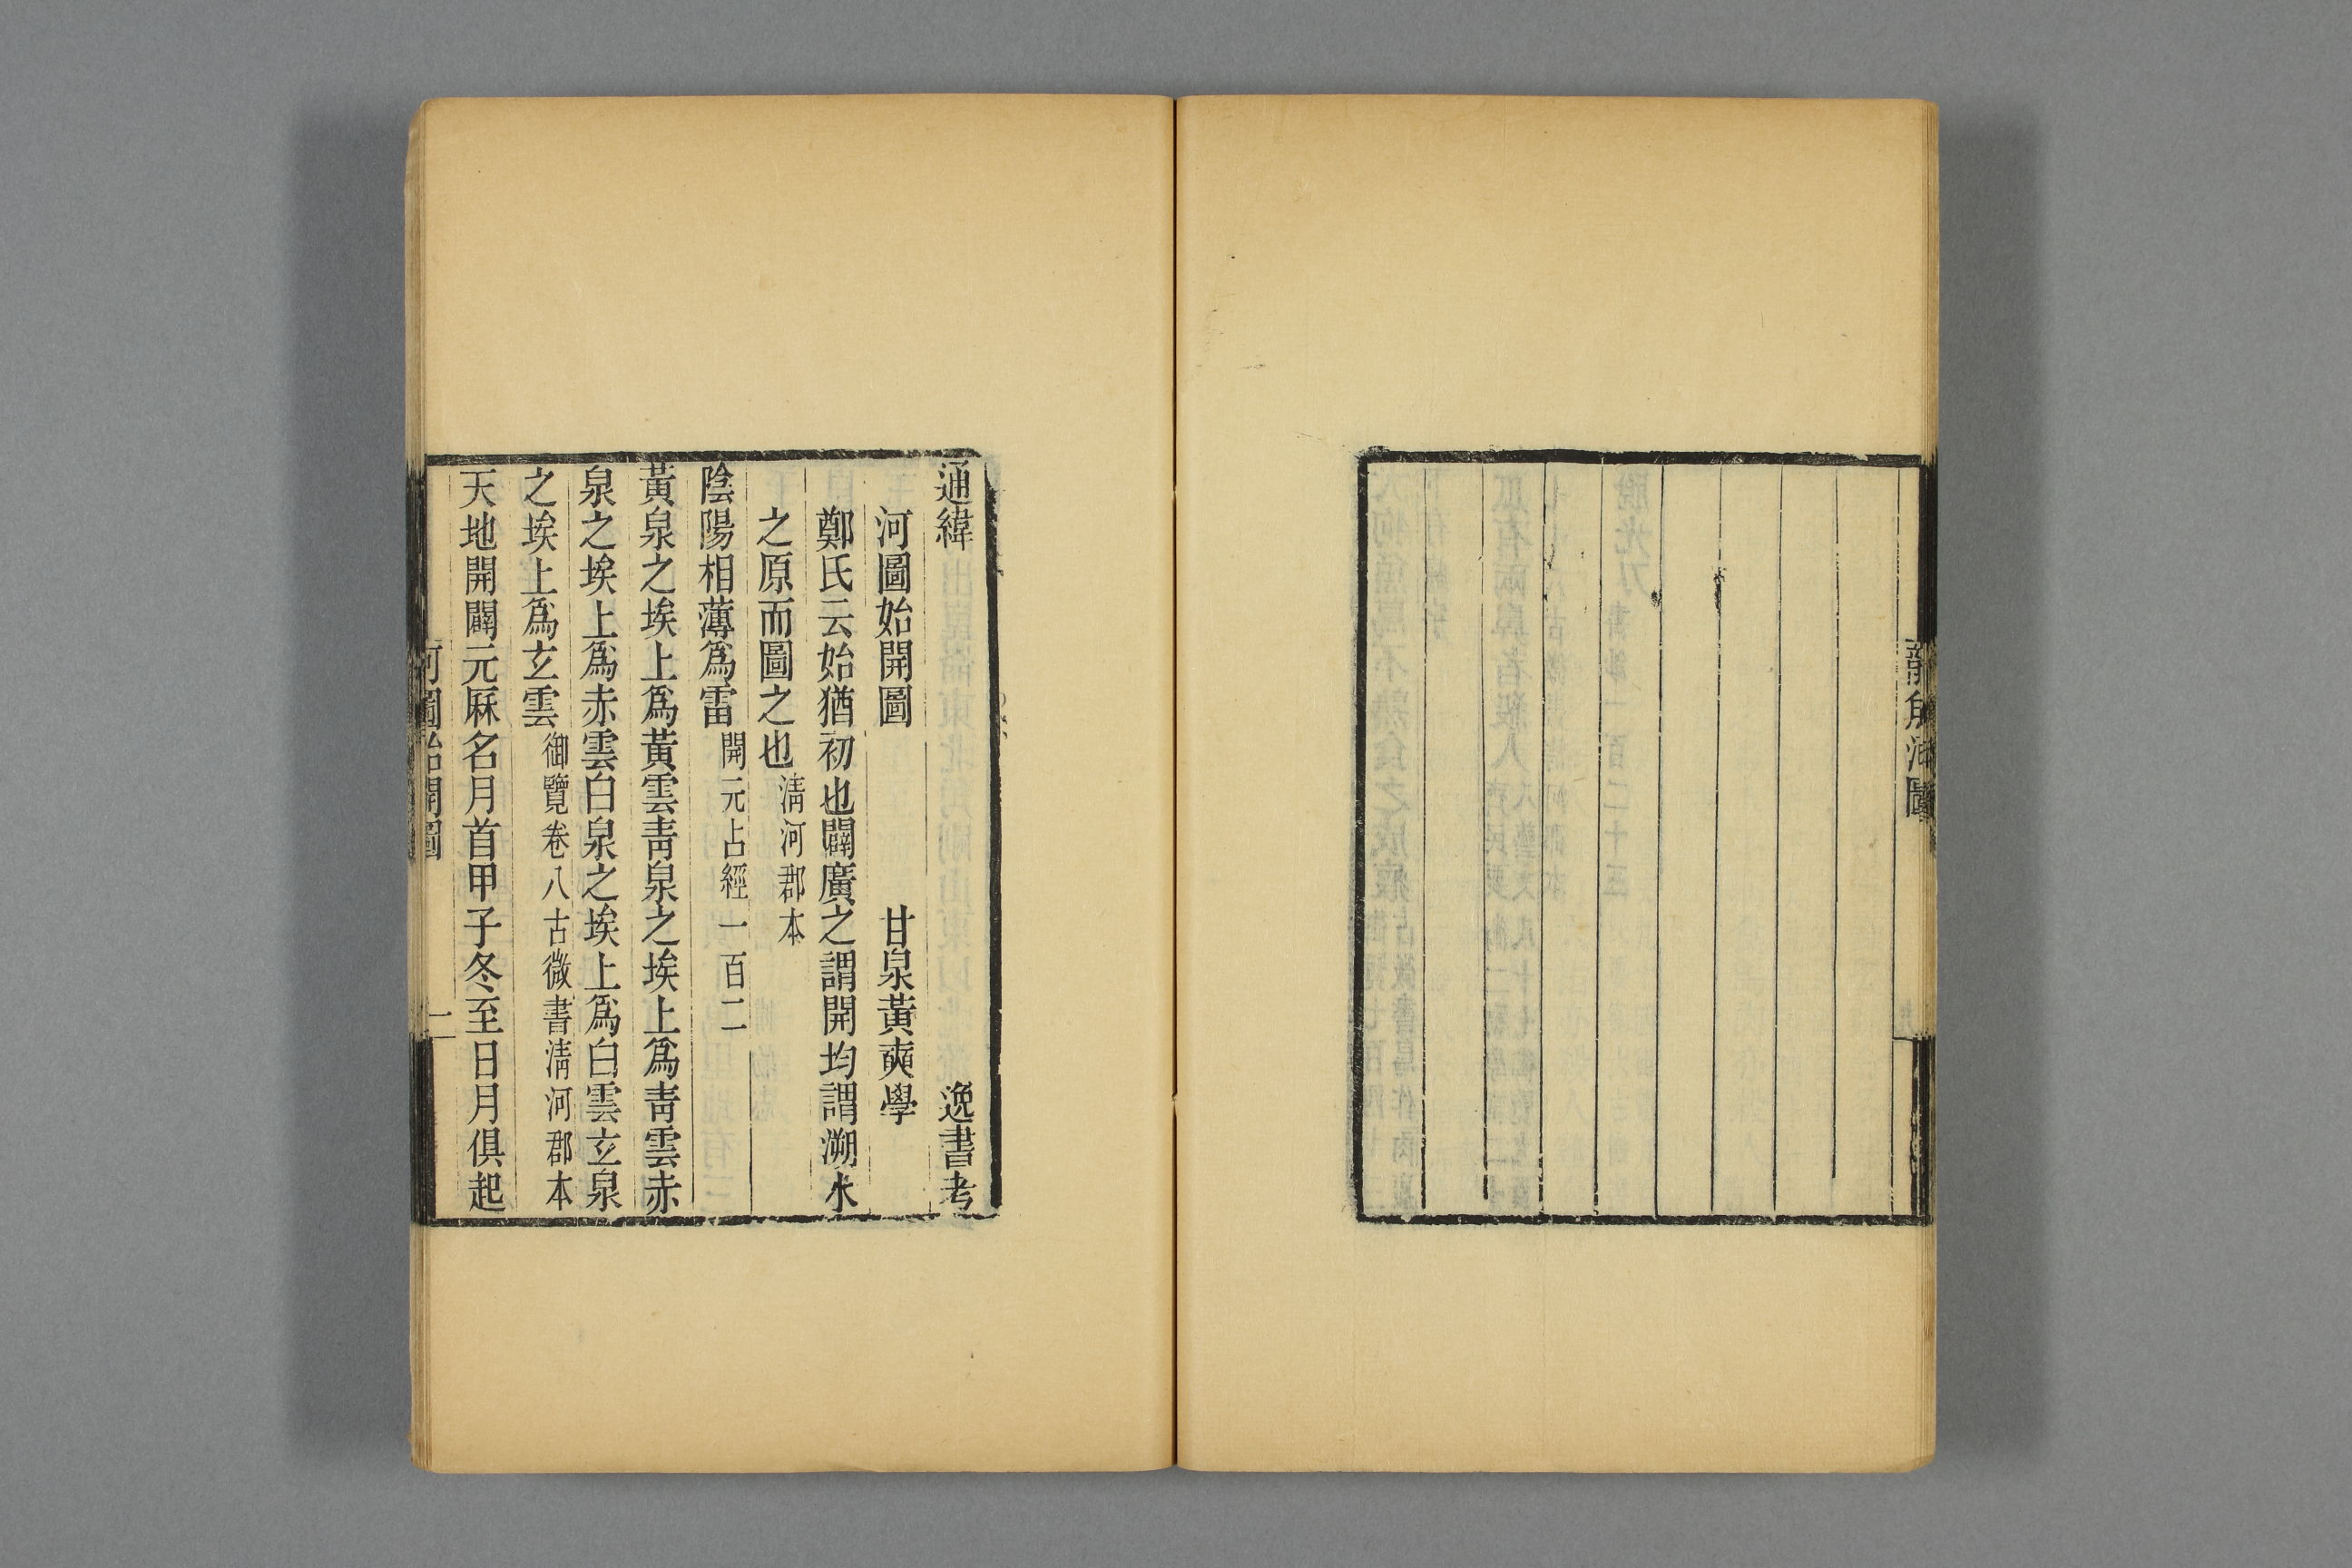 龍魚河圖
通緯 逸書考
河圖始開圖 甘泉黃奭學
鄭氏云始猶初也闢廣之謂開均謂溯水
之原而圖之也清河郡本
陰陽相薄爲雷開元占經一百二
黃泉之埃上爲黃雲青泉之埃上爲青雲赤
泉之埃上爲赤雲白泉之埃上爲白雲玄泉
之埃上爲玄雲御覽卷八古微書清河郡本
天地開闢元厤名月首甲子冬至日月俱起
河圖始開圖 一